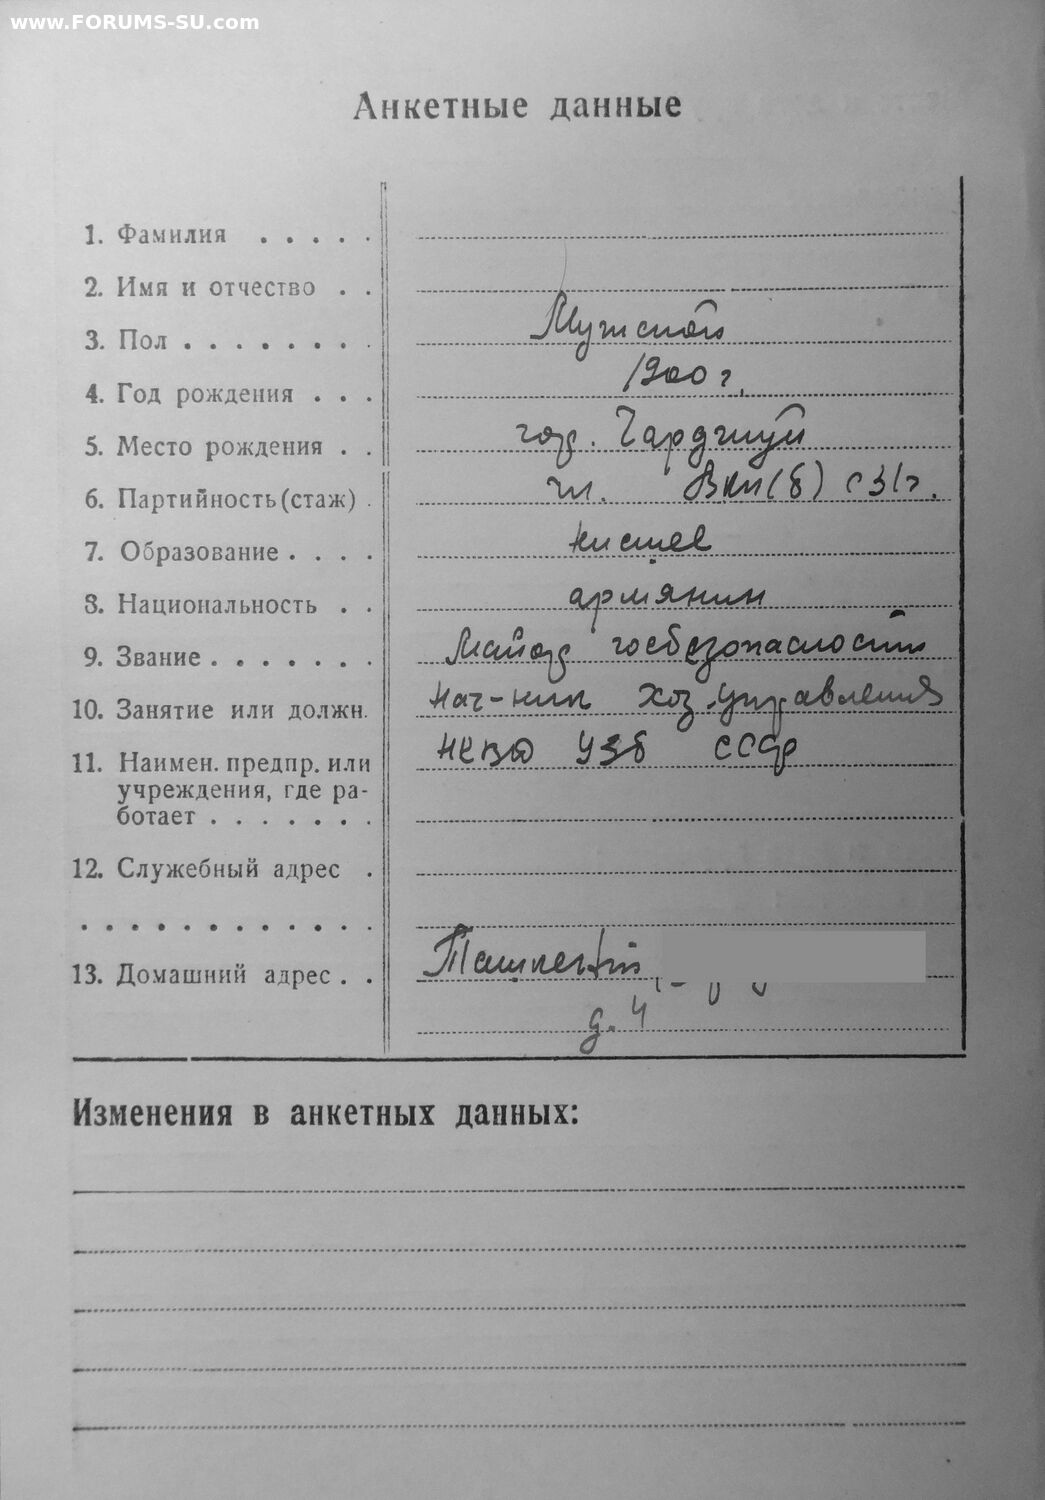 www.FORUMS-SU.com
Анкетные данные
1. Фамилия . . . . .
2. Имя и отчество . .
3. Пол . . . . . . . . Мужской
4. Год рождения . . . 1900 г.
5. Место рождения . . гор. Чарджуй
6. Партийность (стаж) . чл. ВКП(б) с 31г.
7. Образование . . . . низшее
8. Национальность . . армянин
9. Звание . . . . . . . Майор госбезопасности
10. Занятие или должн. Нач-ник Хоз. управления
11. Наимен. предпр. или НКВД УЗб ССР
учреждения, где ра-
ботает . . . . . . .
12. Служебный адрес .
. . . . . . . . . . . .
13. Домашний адрес . . Ташкент
д. 4
Изменения в анкетных данных: